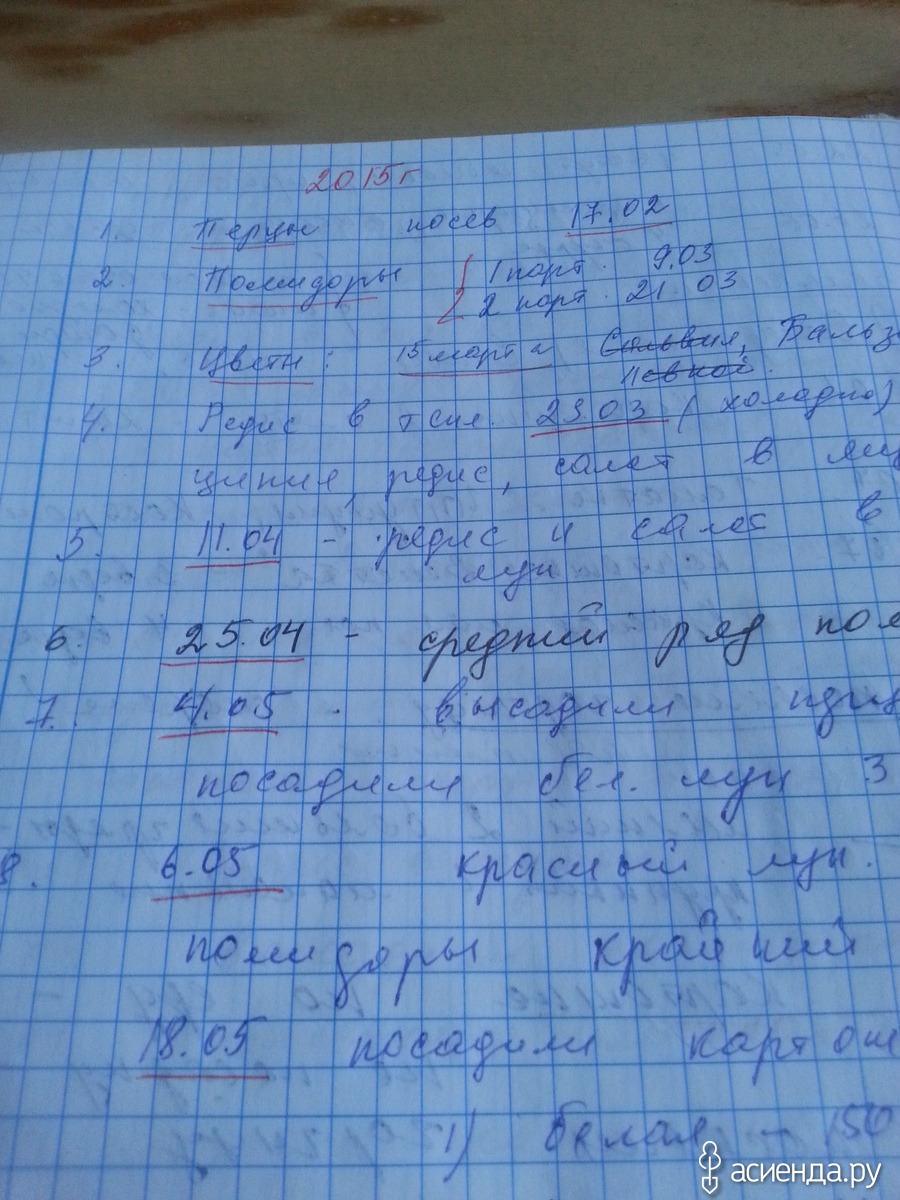 2015г
1. Перцы посев 17.02
2. Помидоры 1 парт. 9.03
2 парт. 21.03
3. Цветы: 15 марта Сальвия, Бальз
Левкой.
4. Редис в тепл. 29.03 (холодно)
циния, редис, салат в ящ
5. 11.04 - редис и салат в
лук
6. 25.04 - средний ряд пом
7. 4.05 - высадили
посадили бел. лук 3
8. 6.05 красный лук.
помидоры крайний
18.05 посадили картош
1) белая - 150
асиенда.ру